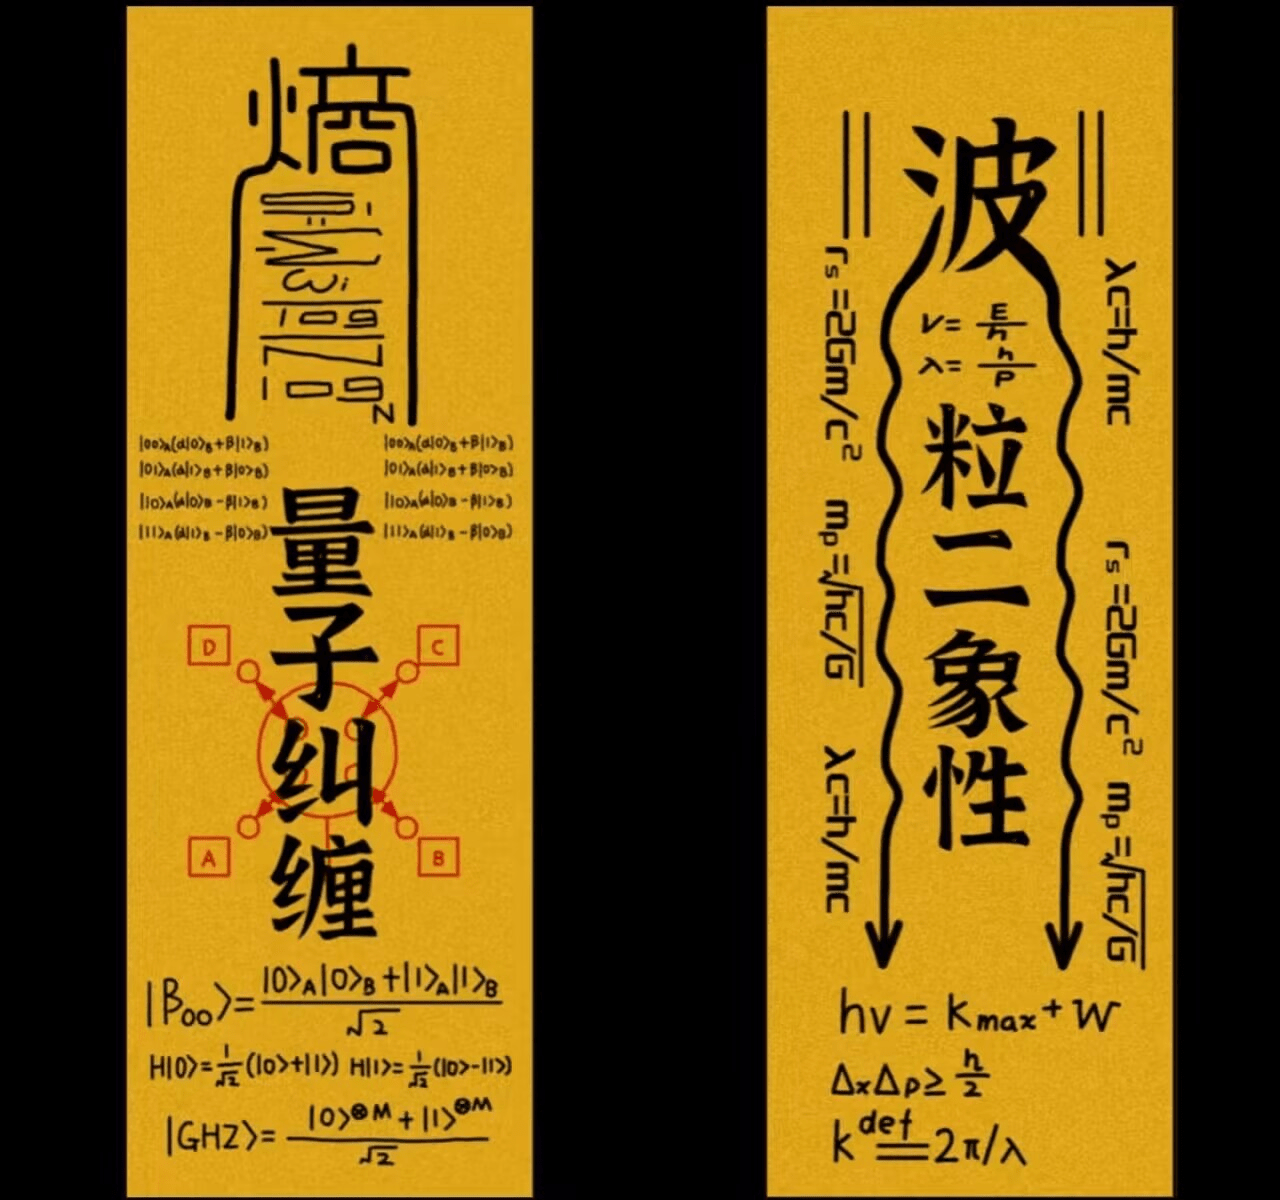 熵
|00⟩A(α|0⟩B+β|1⟩B)
|01⟩A(α|1⟩B+β|0⟩B)
|10⟩A(α|0⟩B-β|1⟩B)
|11⟩A(α|1⟩B-β|0⟩B)
|00⟩A(α|0⟩B+β|1⟩B)
|01⟩A(α|1⟩B+β|0⟩B)
|10⟩A(α|0⟩B-β|1⟩B)
|11⟩A(α|1⟩B-β|0⟩B)
量子纠缠
D
C
A
B
|B₀₀⟩=|0⟩A|0⟩B+|1⟩A|1⟩B/√2
H|0⟩=1/√2(|0⟩+|1⟩) H|1⟩=1/√2(|0⟩-|1⟩)
|GHZ⟩=|0⟩⊗M+|1⟩⊗M/√2
波
ν=E/h
λ=h/p
粒二象性
rs=2Gm/c² mp=√hc/G λc=h/mc
λc=h/mc rs=2Gm/c² mp=√hc/G
hv=Kmax+W
ΔxΔp≥ħ/2
k def=2π/λ